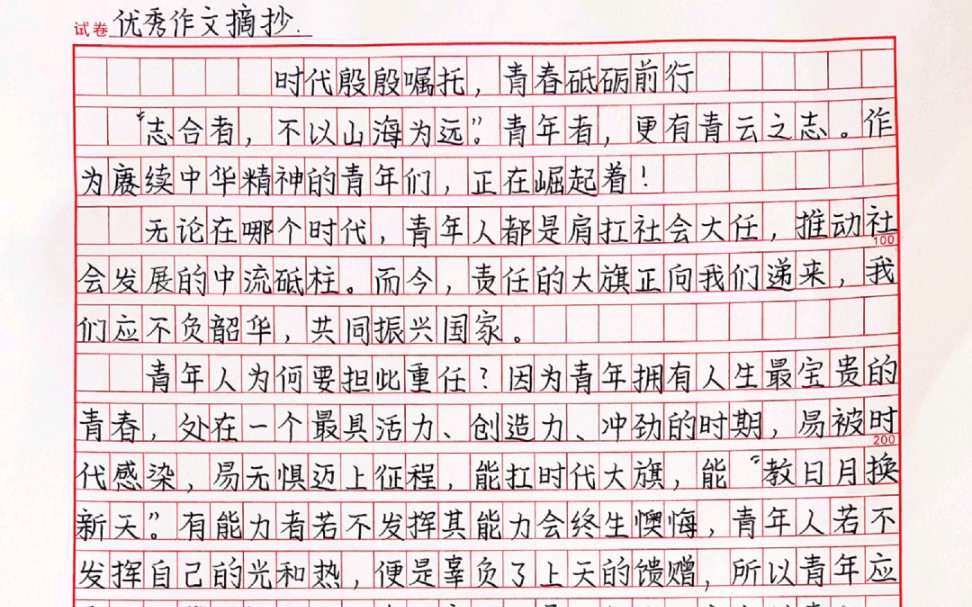 试卷 优秀作文摘抄.
时代殷殷嘱托，青春砥砺前行
“志合者，不以山海为远”。青年者，更有青云之志。作
为赓续中华精神的青年们，正在崛起着！
无论在哪个时代，青年人都是肩扛社会大任，推动社
100
会发展的中流砥柱。而今，责任的大旗正向我们递来，我
们应不负韶华，共同振兴国家。
青年人为何要担此重任？因为青年拥有人生最宝贵的
青春，处在一个最具活力、创造力、冲劲的时期，易被时
200
代感染，易无惧迈上征程，能扛时代大旗，能“教日月换
新天”。有能力者若不发挥其能力会终生懊悔，青年人若不
发挥自己的光和热，便是辜负了上天的馈赠，所以青年应